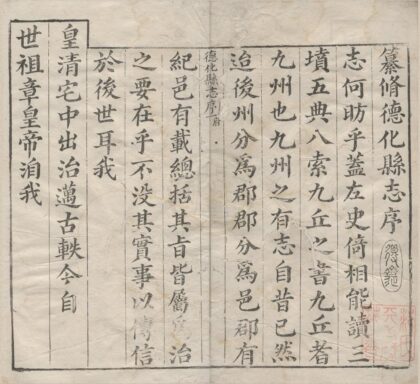 纂脩德化縣志序
志何昉乎蓋左史倚相能讀三
墳五典八索九丘之書九丘者
九州也九州之有志自昔已然
迨後州分為郡郡分為邑郡有
德化縣志序
紀邑有載總括其旨皆屬為治
之要在乎不没其實事以傳信
於後世耳我
皇清宅中出治邁古軼今自
世祖章皇帝洎我